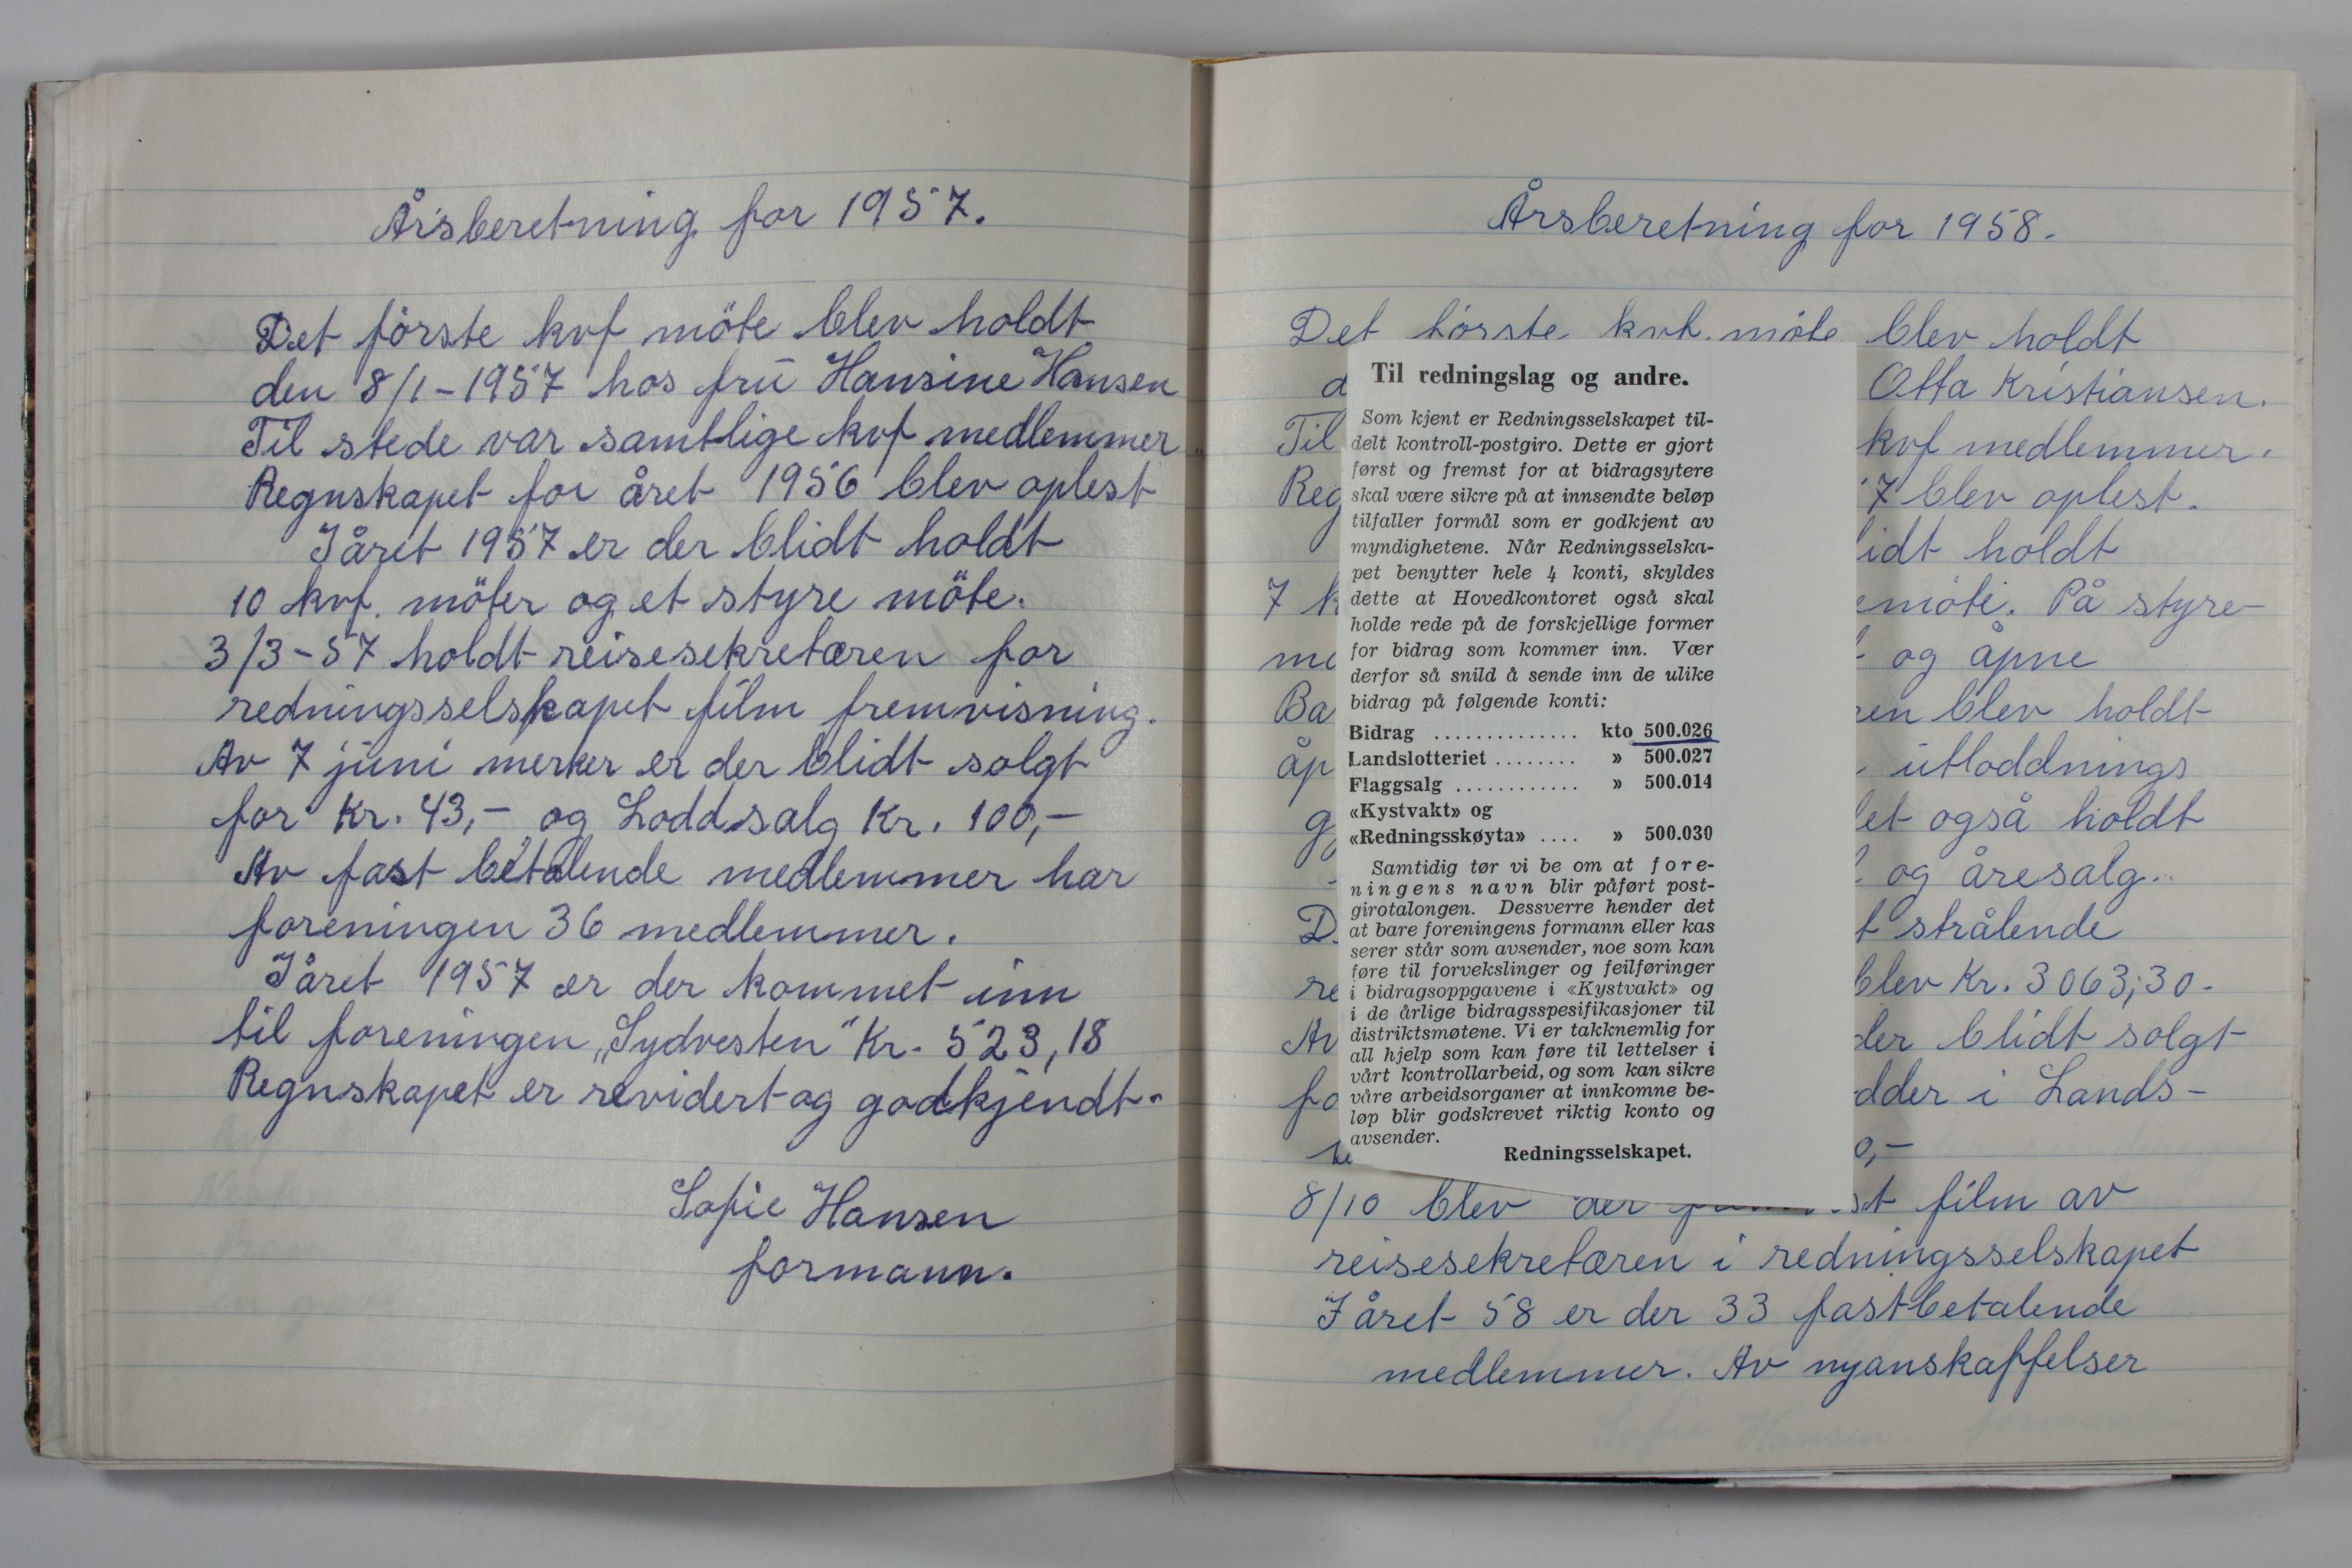 Årsberetning for 1957.
Det förste kvf möte blev holdt
den 8/1-1957 hos fru Hansine Hansen
Til stede var samtlige kvf medlemmer
Regnskapet for året 1956 blev oplest
I året 1957 er der blidt holdt
10 kvf. möter og et styre möte.
3/3-57 holdt reisesekretæren for
redningsselskapet film fremvisning.
Av 7 juni merker er der blidt solgt
for Kr. 43,- og Loddsalg Kr. 100,-
Av fast betalende medlemmer har
foreningen 36 medlemmer.
I året 1957 er der kommet inn
til foreningen „Sydvesten" Kr. 523,18
Regnskapet er revidert og godkjendt.
Sofie Hansen
formann.
Årsberetning for 1958.
Det förste kvf. möte blev holdt
Otta Kristiansen.
Til kvf medlemmer.
7 blev oplest.
holdt
7 På styre-
og åpne
blev holdt
utloddnings
også holdt
og åresalg.
strålende
blev Kr. 3063,30.
Av der blidt solgt
i Lands-
8/10 blev der film av
reisesekretæren i redningsselskapet
I året 58 er der 33 fastbetalende
medlemmer. Av nyanskaffelser
Til redningslag og andre.
Som kjent er Redningsselskapet til-
delt kontroll-postgiro. Dette er gjort
først og fremst for at bidragsytere
skal være sikre på at innsendte beløp
tilfaller formål som er godkjent av
myndighetene. Når Redningsselska-
pet benytter hele 4 konti, skyldes
dette at Hovedkontoret også skal
holde rede på de forskjellige former
for bidrag som kommer inn. Vær
derfor så snild å sende inn de ulike
bidrag på følgende konti:
Bidrag .............. kto 500.026
Landslotteriet ........ » 500.027
Flaggsalg ............ » 500.014
«Kystvakt» og
«Redningsskøyta» .... » 500.030
Samtidig tør vi be om at fore-
ningens navn blir påført post-
girotalongen. Dessverre hender det
at bare foreningens formann eller kas
serer står som avsender, noe som kan
føre til forvekslinger og feilføringer
i bidragsoppgavene i «Kystvakt» og
i de årlige bidragsspesifikasjoner til
distriktsmøtene. Vi er takknemlig for
all hjelp som kan føre til lettelser i
vårt kontrollarbeid, og som kan sikre
våre arbeidsorganer at innkomne be-
løp blir godskrevet riktig konto og
avsender.
Redningsselskapet.